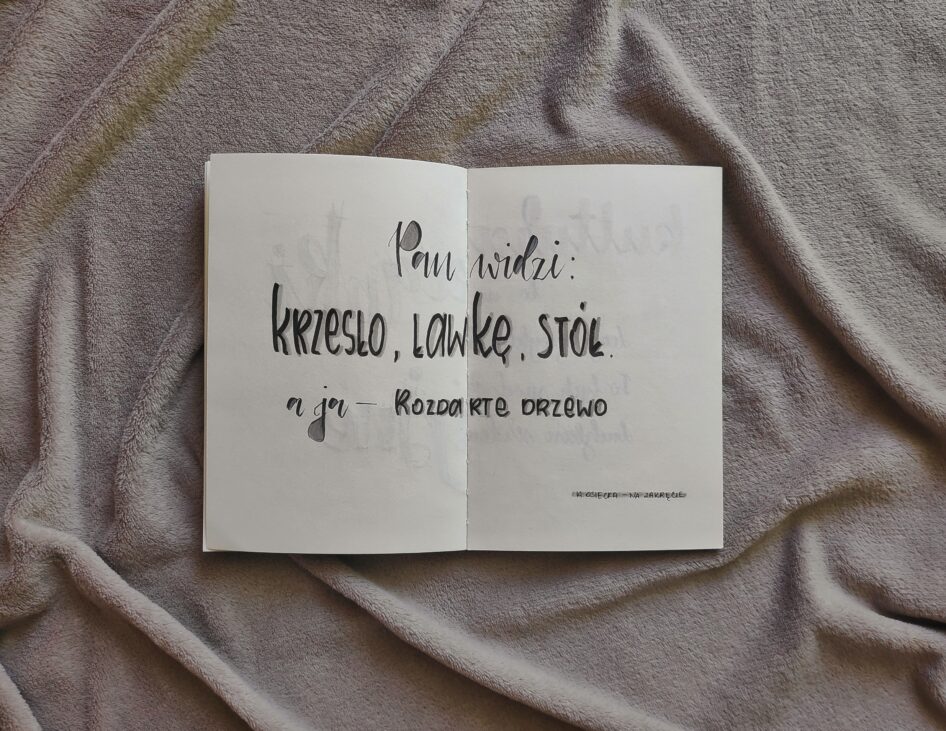 Pan widzi:
KRZESŁO, ŁAWKĘ, STÓŁ.
a ja – ROZDARTE DRZEWO
OSIECKA – NA ZAKRĘCIE